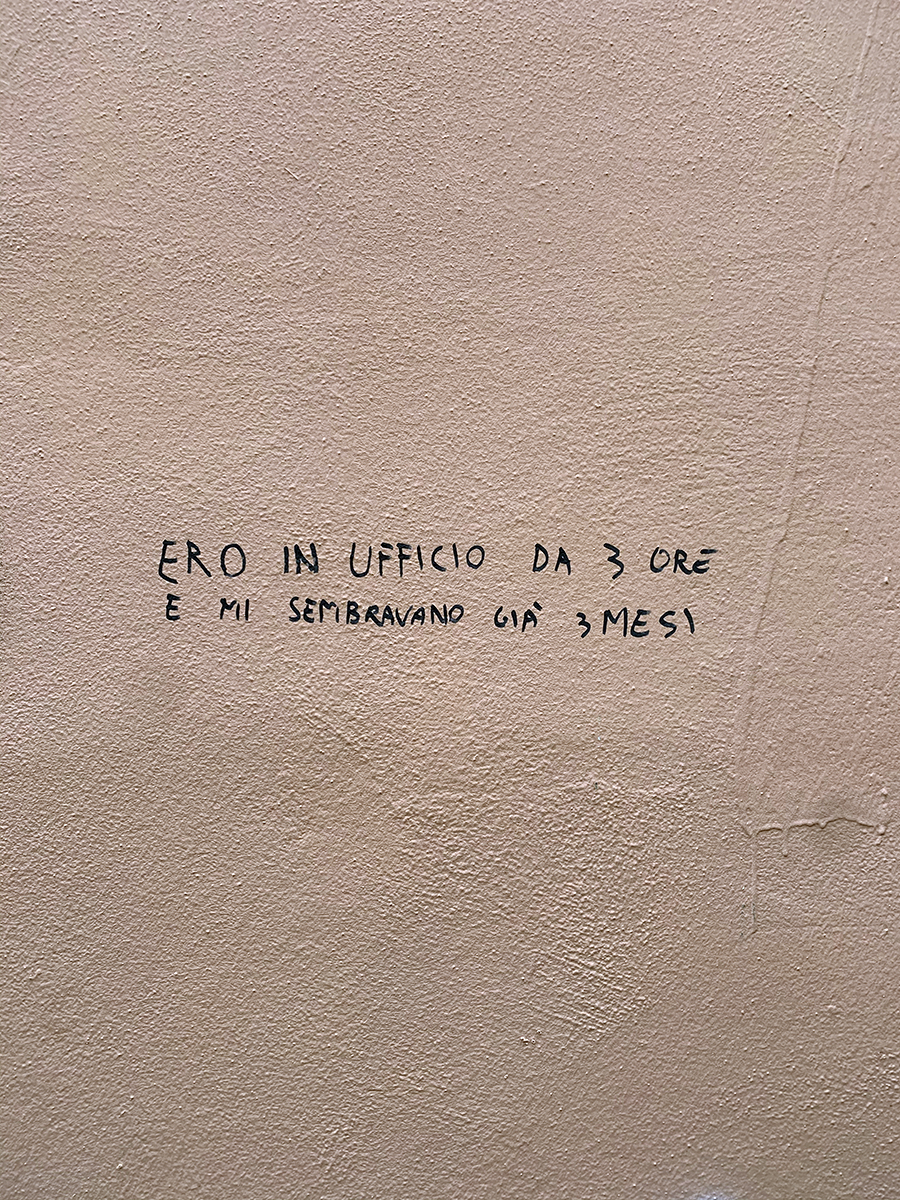 ERO IN UFFICIO DA 3 ORE
E MI SEMBRAVANO GIÀ 3 MESI